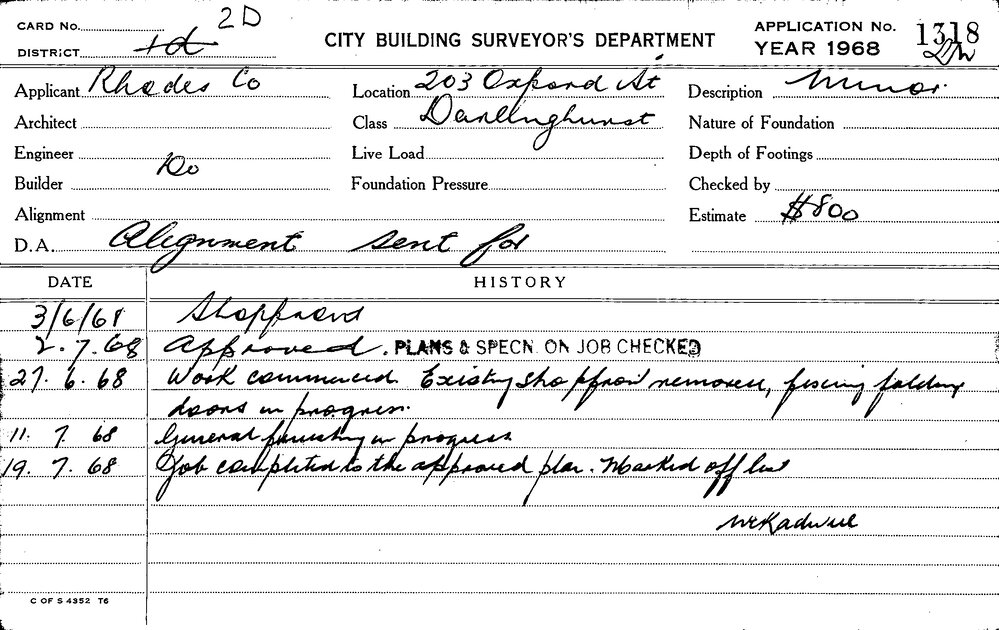 CARD No. 2D
DISTRICT
CITY BUILDING SURVEYOR'S DEPARTMENT
APPLICATION No. 1318
YEAR 1968
Applicant Rhodes Co
Location 203 Oxford St
Description Minor.
Architect
Class Darlinghurst
Nature of Foundation
Engineer
Live Load
Depth of Footings
Builder Do
Foundation Pressure
Checked by
Alignment
Estimate $800
D.A. Alignment sent for
DATE HISTORY
3/6/68 Shopfront
2.7.68 Approved. PLANS & SPECN. ON JOB CHECKED
27.6.68 Work commenced. Existing shopfront removed, fixing folding
doors in progress.
11.7.68 General finishing in progress
19.7.68 Job completed to the approved plan. Marked off list
C OF S 4352 T6